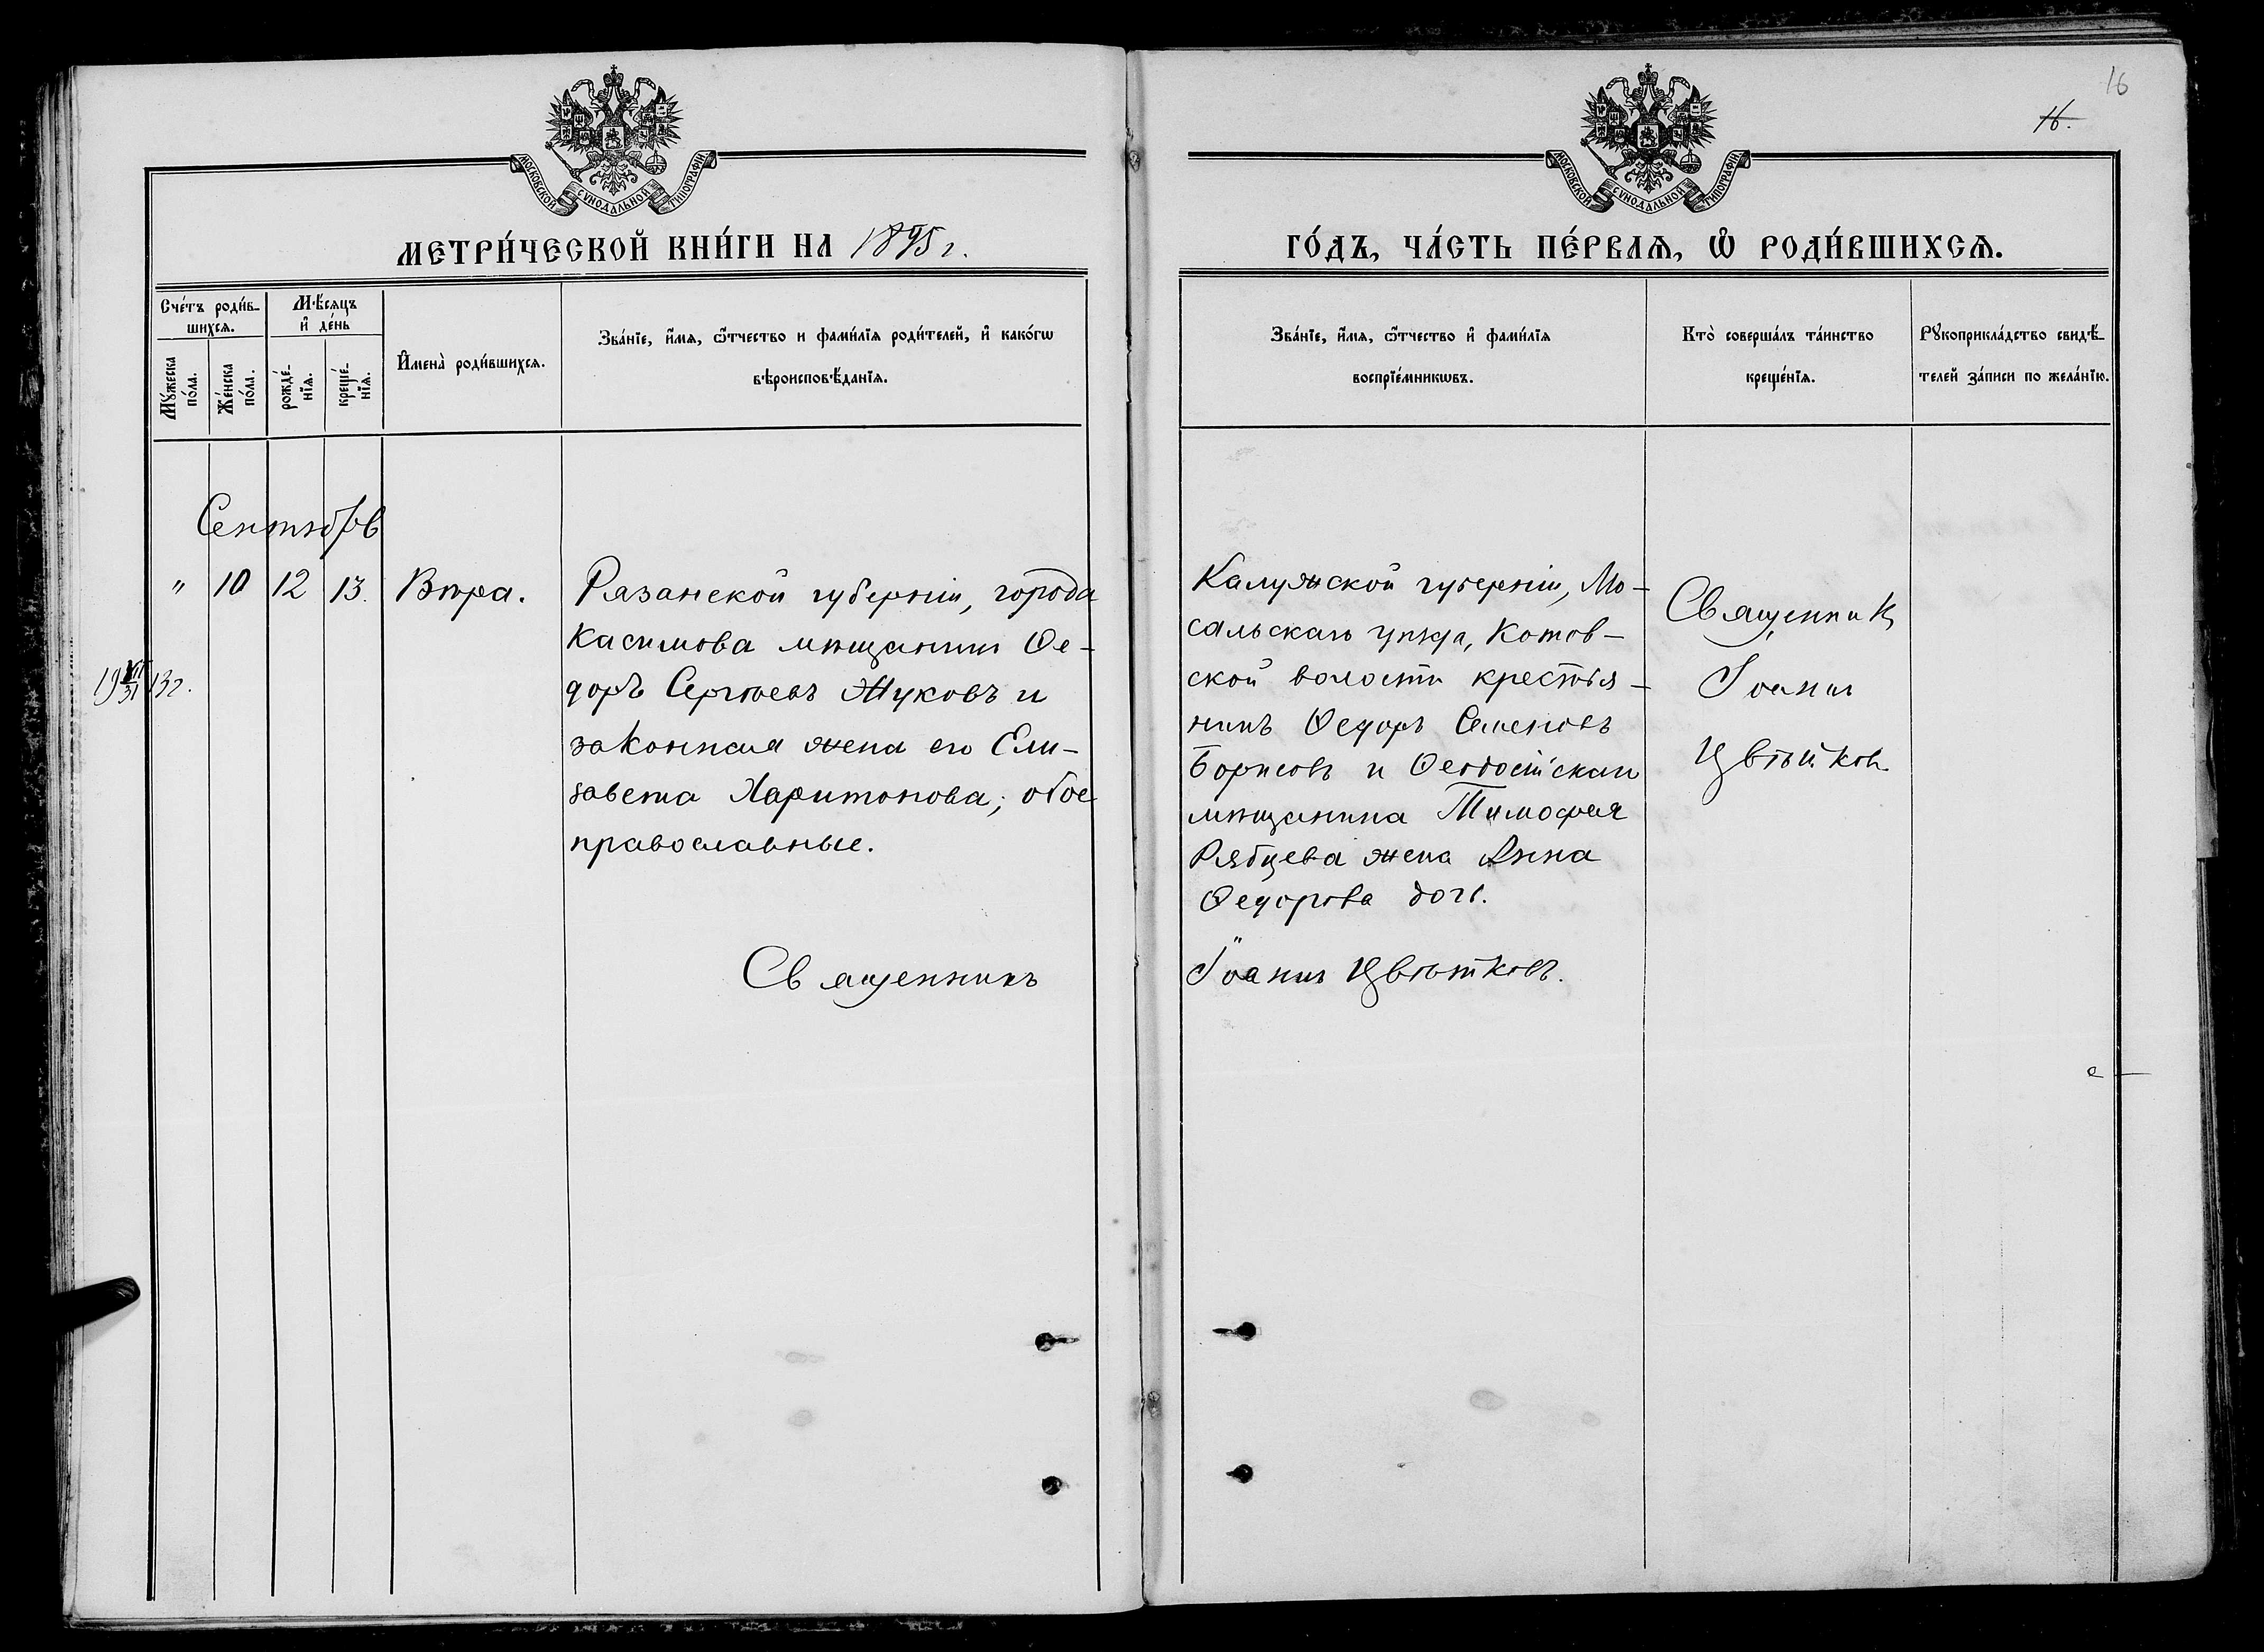 16
16.
МОСКОВСКОЙ СѴНОДАЛЬНОЙ ТИПОГРАФІИ
МОСКОВСКОЙ СѴНОДАЛЬНОЙ ТИПОГРАФІИ
МЕТРИ́ЧЕСКОЙ КНИ́ГИ НА 1895 г.
ГО́ДЪ, ЧА́СТЬ ПЕ́РВАѦ, Ѽ РОДИ́ВШИХСѦ.
Сче́тъ роди́в-
шихсѧ.
Мꙋ́жеска
по́ла.
Же́нска
по́ла.
Мѣ́сѧцъ
и҆ де́нь
рожде́-
нїѧ.
креще́-
нїѧ.
И҆мена̀ роди́вшихсѧ.
Зва́нїе, и҆́мѧ, ѿчество и фами́лїѧ роди́телей, и҆ како́гѡ
вѣроисповѣ́данїѧ.
Зва́нїе, и҆́мѧ, ѿчество и҆ фами́лїѧ
воспрїе́мникѡвъ.
Кто̀ соверша́лъ та́инство
креще́нїѧ.
Рꙋкоприкла́дство свидѣ́-
телей за́писи по жела́нїю.
Сентябрь
" 10 12 13. Вѣра.
Рязанской губерніи, города
Касимова мѣщанинъ Ѳе-
доръ Сергѣевъ Жуковъ и
законная жена его Ели-
завета Харитонова; обое
православные.
Священникъ
Калужской губерніи, Мо-
сальскаго уѣзда, Котов-
ской волости крестья-
нинъ Ѳедоръ Семеновъ
Борисовъ и Ѳеодосійскаго
мѣщанина Тимофея
Рябцева жена Анна
Ѳедорова дочь.
Іоаннъ Цвѣтковъ.
Священникъ
Іоаннъ
Цвѣтковъ.